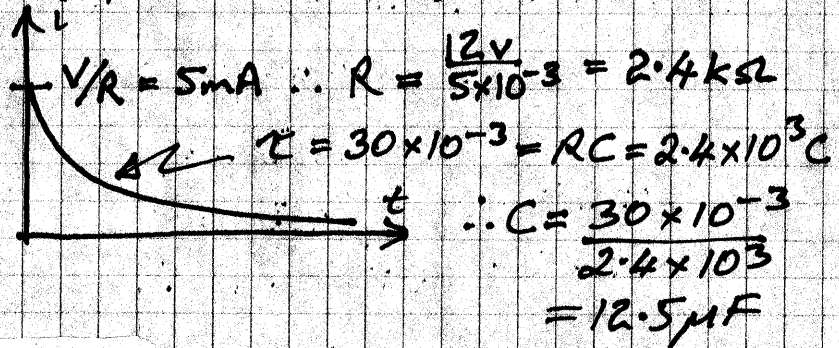 i
V/R = 5mA ∴ R = 12V / 5×10⁻³ = 2.4kΩ
τ = 30×10⁻³ = RC = 2.4×10³C
t
∴ C = 30×10⁻³ / 2.4×10³
= 12.5μF